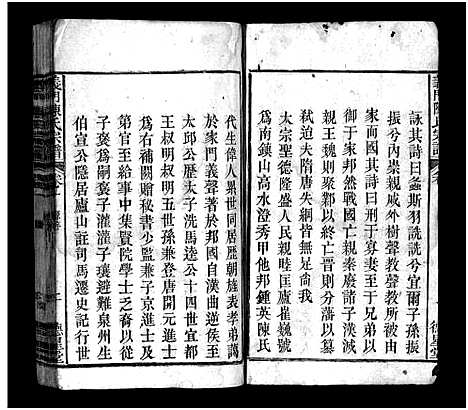 詠其詩曰螽斯羽詵詵兮宜爾子孫振
振兮內崇親戚外樹聲教聲教所被由
來國矣其詩曰刑于寡妻至于兄弟以
御于家邦然戰國亡親秦廢諸子漢猜
王魏則衆鄴以終亡晉則分藩以纂
弒迨夫隋唐失綱皆無足尚我
太宗聖德隆盛人民親睦匡廬崔巍
爲南鎮山高水澄秀甲他邦鍾英陳氏
代生偉人累世同居歷朝旌表孝弟藹
於家門義聲著於邦國自漢曲逆侯至
太邱公歷太子洗馬逵公十四世宜都
王叔明叔明五世孫兼登唐開元進士
爲右補闕贈秘書少監兼子京進士及
第官至給事中集賢院學士之脊以從
子褒爲嗣褒子灌灌子瓌避難泉州生
伯宣公隱居廬山註司馬遷史記行世
義門陳氏宗譜
德星堂